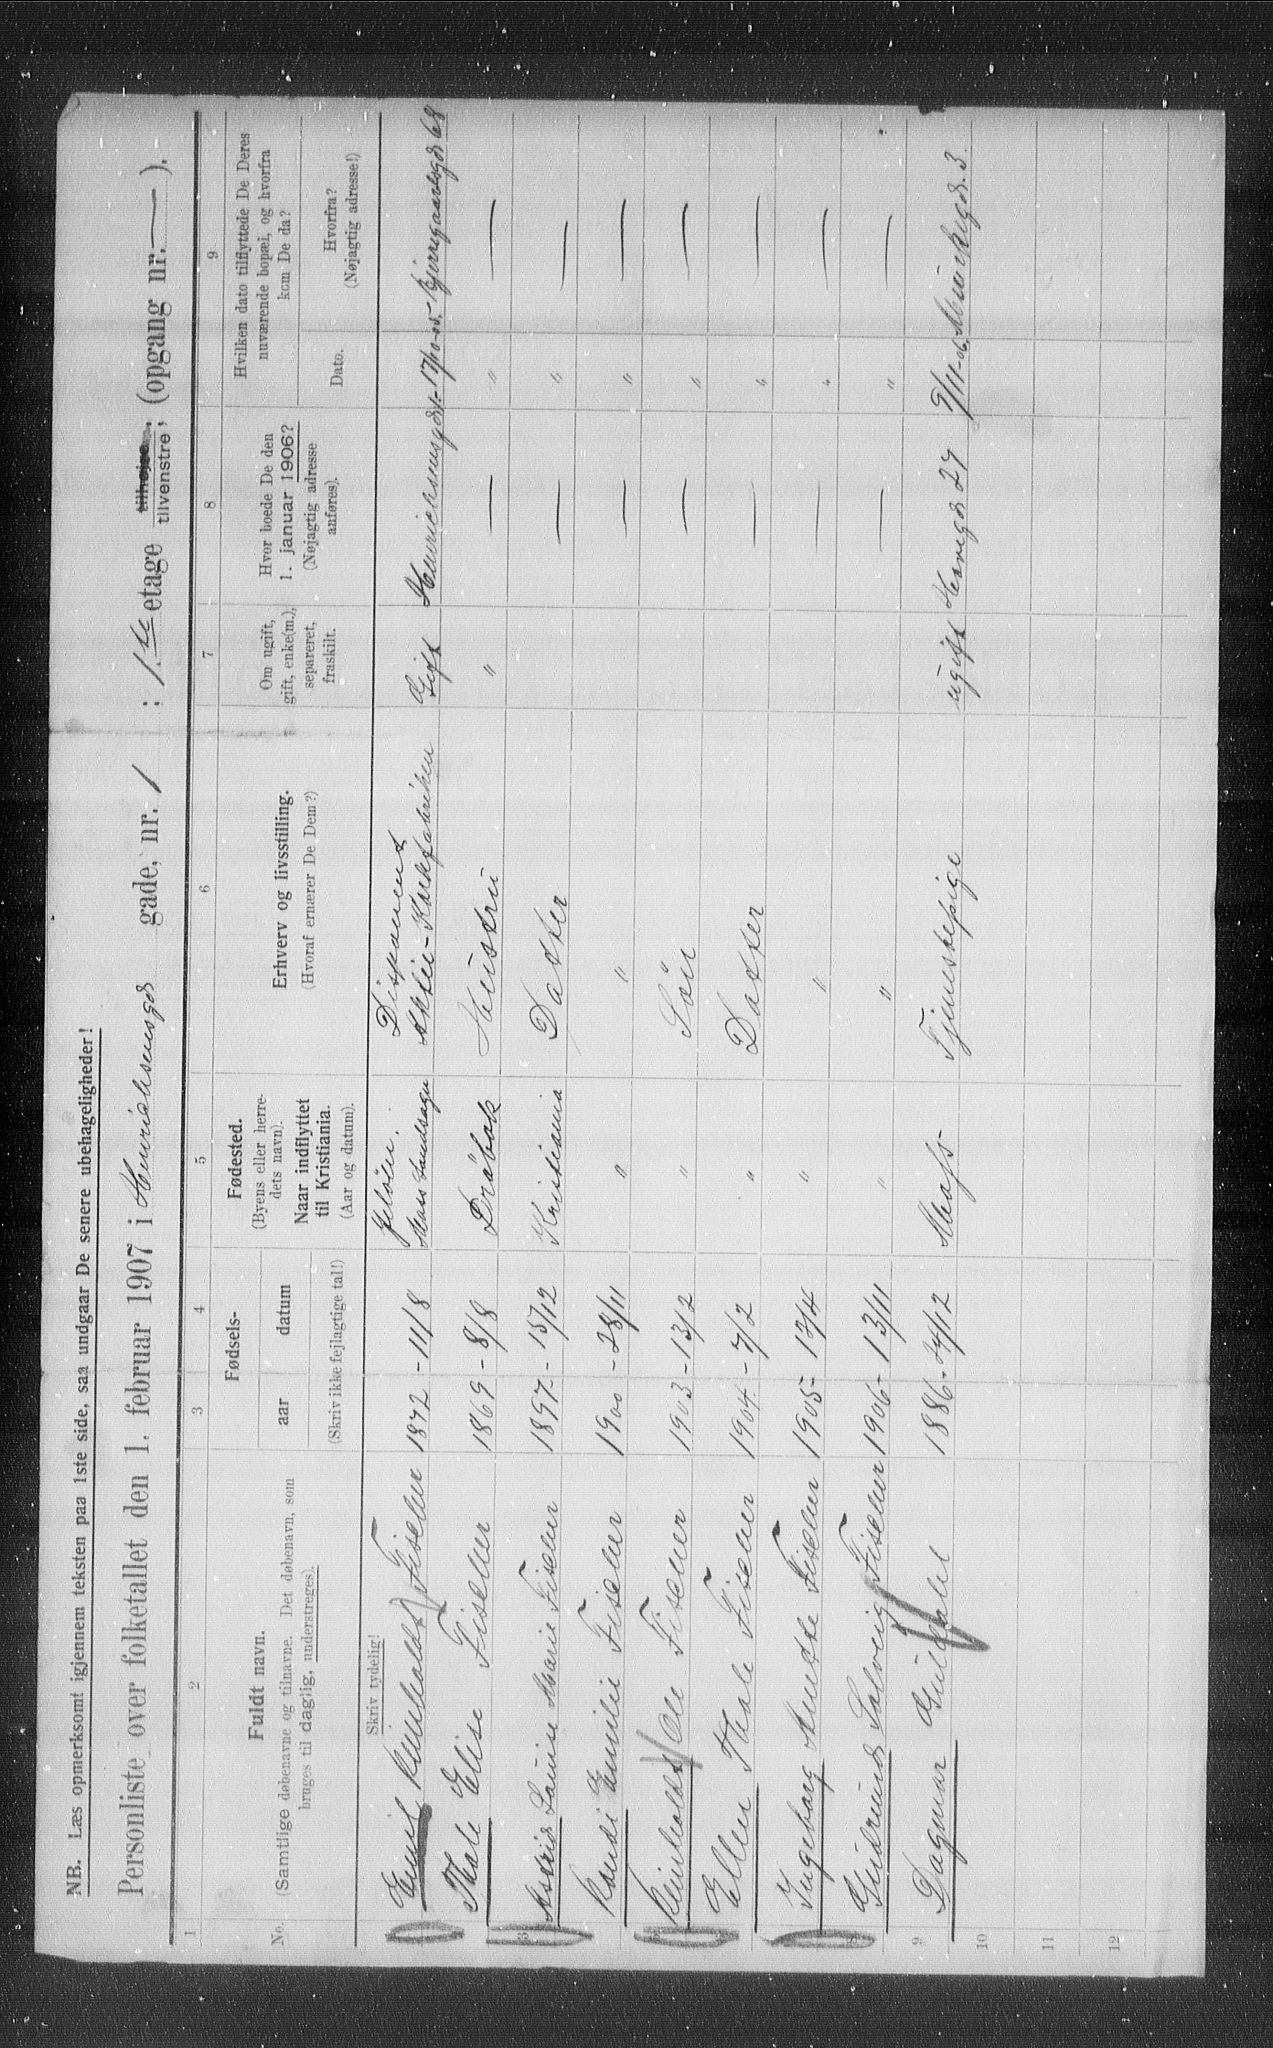 NB. Læs opmerksomt igjennem teksten paa 1ste side, saa undgaar De senere ubehageligheder!
Personliste over folketallet den 1. februar 1907 i Henrichsensgd gade, nr. 1 ; 1.ste etage tilhøjre, tilvenstre, (opgang nr. — ).
1 2 3 4 5 6 7 8 9
No.
Fuldt navn.
(Samtlige døbenavne og tilnavne. Det døbenavn, som
bruges til daglig, understreges).
Fødsels-
aar datum
Fødested.
(Byens eller herre-
dets navn).
Naar indflyttet
til Kristiania.
(Aar og datum).
Erhverv og livsstilling.
(Hvoraf ernærer De Dem?)
Om ugift,
gift, enke(m.),
separeret,
fraskilt.
Hvor boede De den
1. januar 1906?
(Nøjagtig adresse
anføres).
Hvilken dato tilflyttede De Deres
nuværende bopæl, og hvorfra
kom De da?
Dato.
Hvorfra?
(Nøjagtig adresse!)
Skriv tydelig!
(Skriv ikke fejlagtige tal!)
Emil Reinholdt Fischer 1872 - 11/8 Jeløen. Moss Landsogn Disponent Aktie-Korkfabriken Gift Henrichsensgd 1 - 17/10-05 - Bjerregaardsgd 68
Thale Elise Fischer 1869 - 8/8 Drøbak Hustru " — " —
3 Astrid Louise Marie Fischer 1897 - 15/12 Kristiania Datter — " —
Randi Emilie Fischer 1900 - 28/11 " " — " —
Reinholdt Ole Fischer 1903 - 13/2 " Søn — " —
Ellen Thale Fischer 1904 - 7/2 " Datter — " —
Ingeborg Anette Fischer 1905 - 17/4 " " — " —
8 Gudrund Solveig Fischer 1906 - 13/11 " " — " —
9 Dagmar Guldahl 1886 - 24/12 Moss - Tjenestepige ugift 27 9/11-06 Munchsgd. 3
10
11
12